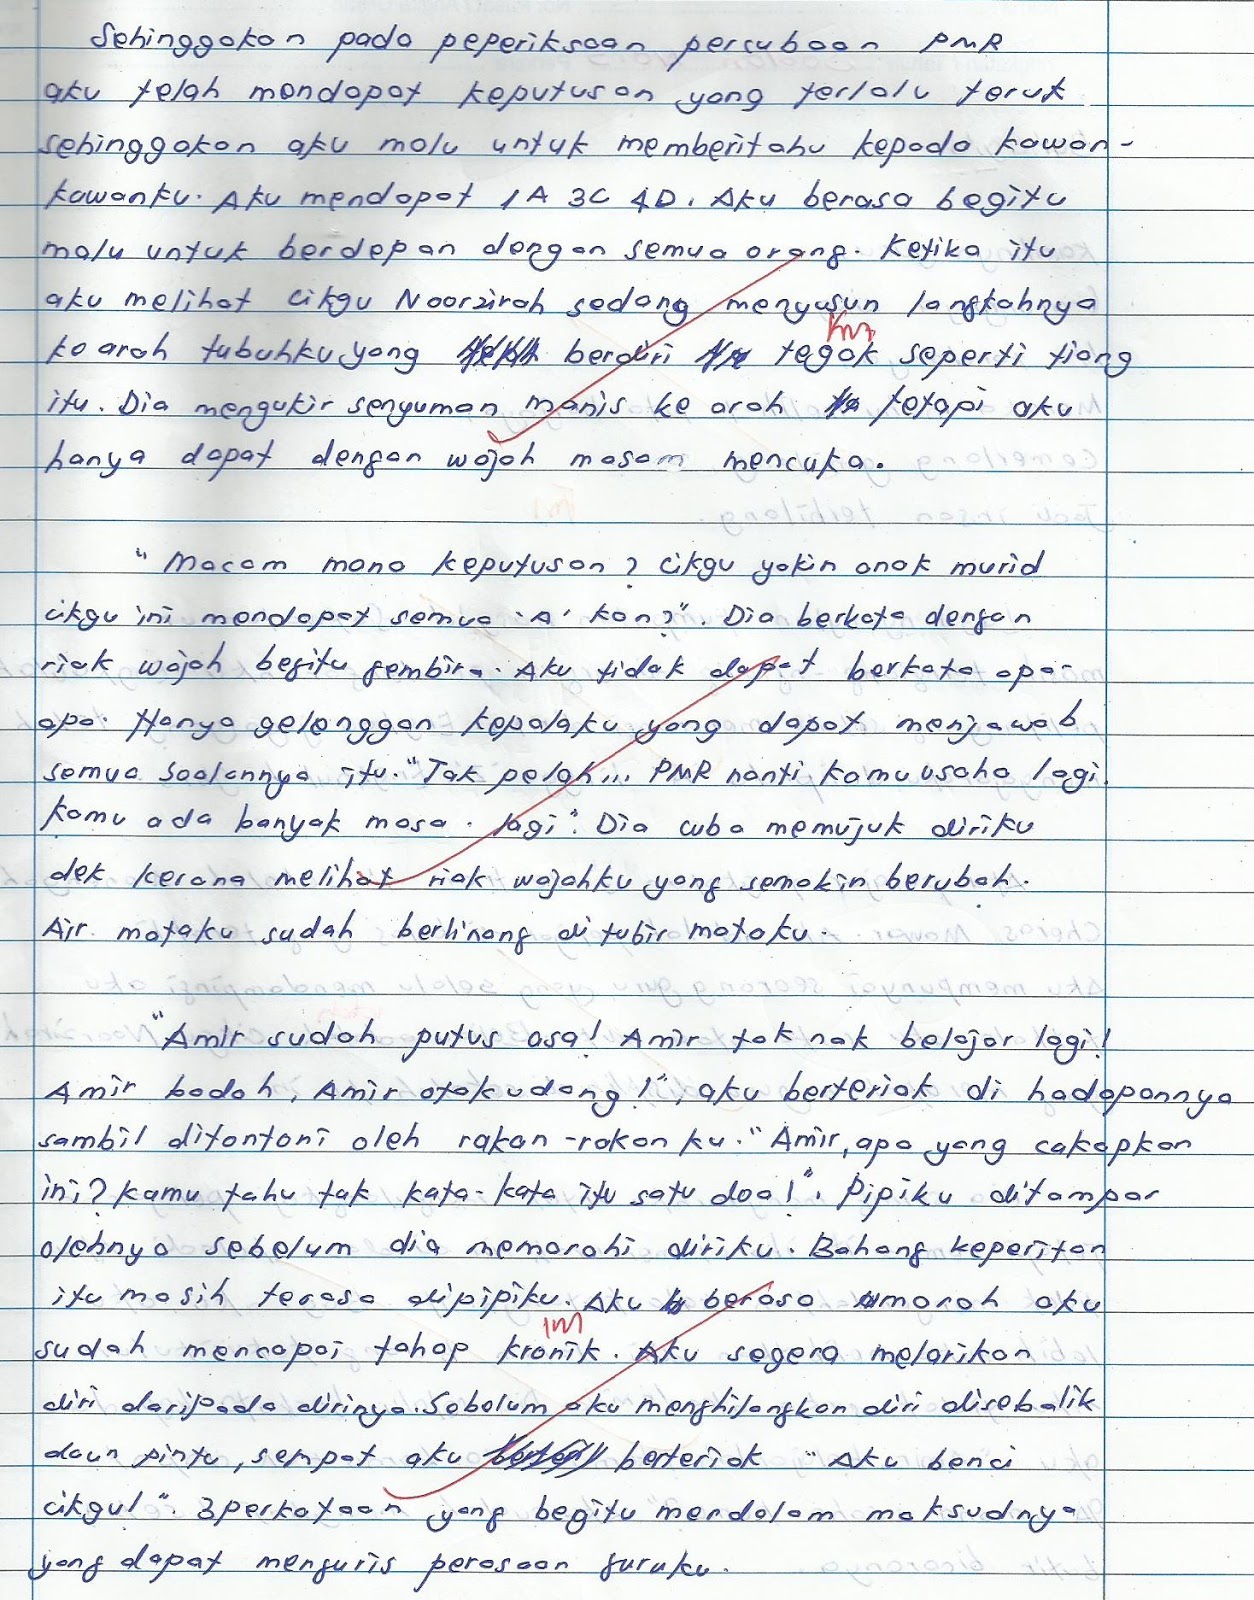 Sehinggakan pada peperiksaan percubaan PMR
aku telah mendapat keputusan yang terlalu teruk
sehinggakan aku malu untuk memberitahu kepada kawan-
kawanku. Aku mendapat 1A 3C 4D. Aku berasa begitu
malu untuk berdepan dengan semua orang. Ketika itu
aku melihat cikgu Noorzirah sedang menyusun langkahnya
ke arah tubuhku yang berdiri tegak seperti tiang
itu. Dia mengukir senyuman manis ke arah tetapi aku
hanya dapat dengan wajah masam mencuka.
"Macam mana keputusan? cikgu yakin anak murid
cikgu ini mendapat semua 'A' kan?". Dia berkata dengan
riak wajah begitu gembira. Aku tidak dapat berkata apa-
apa. Hanya gelenggan kepalaku yang dapat menjawab
semua soalannya itu. "Tak pelah... PMR nanti kamu usaha lagi.
kamu ada banyak masa. lagi". Dia cuba memujuk diriku
dek kerana melihat riak wajahku yang semakin berubah.
Air mataku sudah berlinang di tubir mataku.
"Amir sudah putus asa! Amir tak nak belajar lagi!
Amir bodoh, Amir otak udang!", aku berteriak di hadapannya
sambil ditontoni oleh rakan-rakan ku. "Amir, apa yang cakapkan
ini? kamu tahu tak kata-kata itu satu doa!". Pipiku ditampar
olehnya sebelum dia memarahi diriku. Bahang keperitan
itu masih terasa dipipiku. Aku berasa amarah aku
sudah mencapai tahap kronik. Aku segera melarikan
diri daripada dirinya. Sebelum aku menghilangkan diri disebalik
daun pintu, sempat aku berteriak "Aku benci
cikgu!". 3 perkataan yang begitu mendalam maksudnya
yang dapat menguris perasaan guruku.